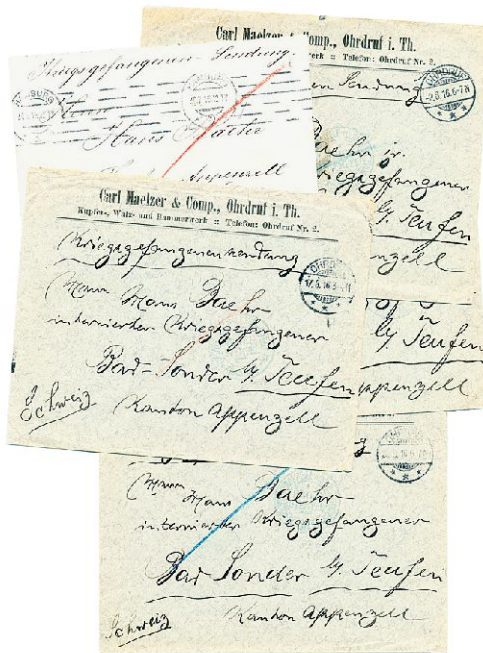 Carl Maelzer & Comp., Ohrdruf i. Th.
Telefon: Ohrdruf Nr. 2.
Sendung
OHRDRUF
Baehr
Kriegsgefangener
b/ Teufen
Appenzell
Kriegsgefangenen-Sendung.
Herrn
Hans Baehr
Appenzell
Carl Maelzer & Comp., Ohrdruf i. Th.
Kupfer-, Walz- und Hammerwerk :: Telefon: Ohrdruf Nr. 2.
Kriegsgefangenensendung
OHRDRUF
Herrn Hans Baehr
internierter Kriegsgefangener
Bad-Sonder b/ Teufen
Schweiz
Kanton Appenzell
b/ Teufen
Appenzell
Herrn Hans Baehr
internierter Kriegsgefangener
Bad-Sonder b/ Teufen
Kanton Appenzell
Schweiz